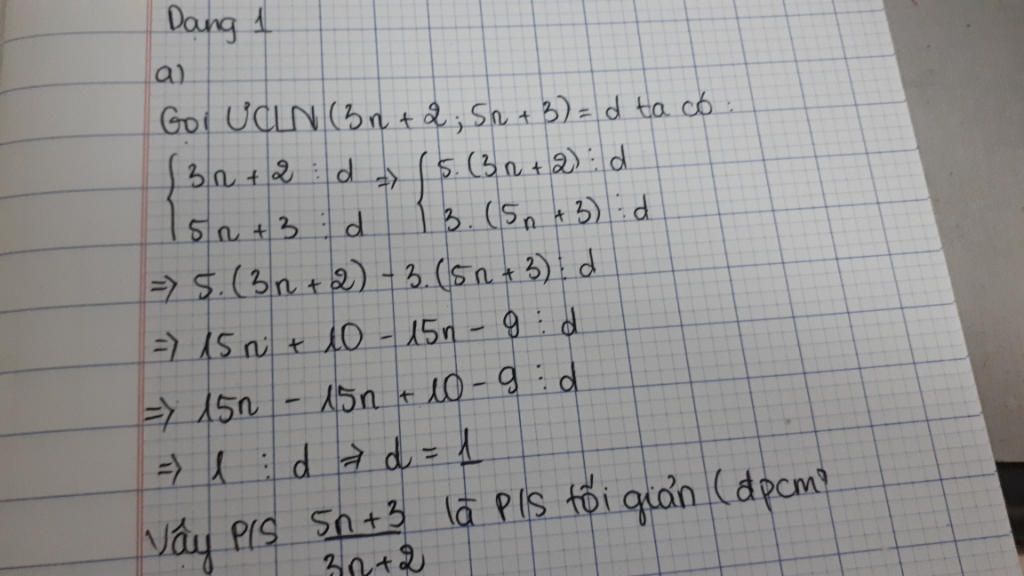 Dạng 1
a)
Gọi ƯCLN (3n + 2 ; 5n + 3) = d ta có :
{ 3n + 2 ⋮ d => { 5.(3n + 2) ⋮ d
5n + 3 ⋮ d 3. (5n + 3) ⋮ d
=> 5.(3n + 2) - 3.(5n + 3) ⋮ d
=> 15n + 10 - 15n - 9 ⋮ d
=> 15n - 15n + 10 - 9 ⋮ d
=> 1 ⋮ d => d = 1
Vậy P/S (5n+3)/(3n+2) là P/S tối giản (đpcm)